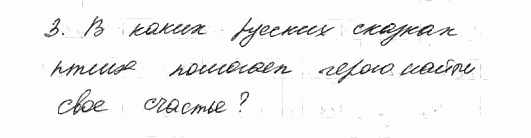 3. В каких русских сказках
птица помогает герою найти
свое счастье?